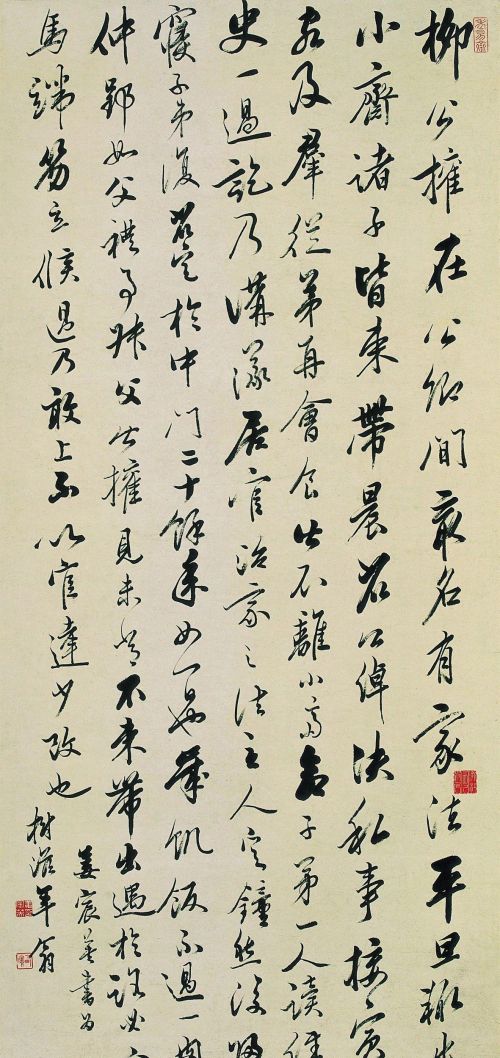 柳公權在公卿間最名有家法平旦輒出
小齋諸子皆束帶晨省公綽決私事接賓
客及羣從弟再會食皆不離小齋召子弟一人讀經
史一過訖乃講議居官治家之法至人定鐘然後歸
寢子弟復昏定於中門二十餘年如一日歲飢飯不過一肉
仲郢如父禮事叔父公權見未嘗不束帶出遇於路必下
馬端笏立候過乃敢上不以官達少改也
姜宸英書為
樹滋年翁